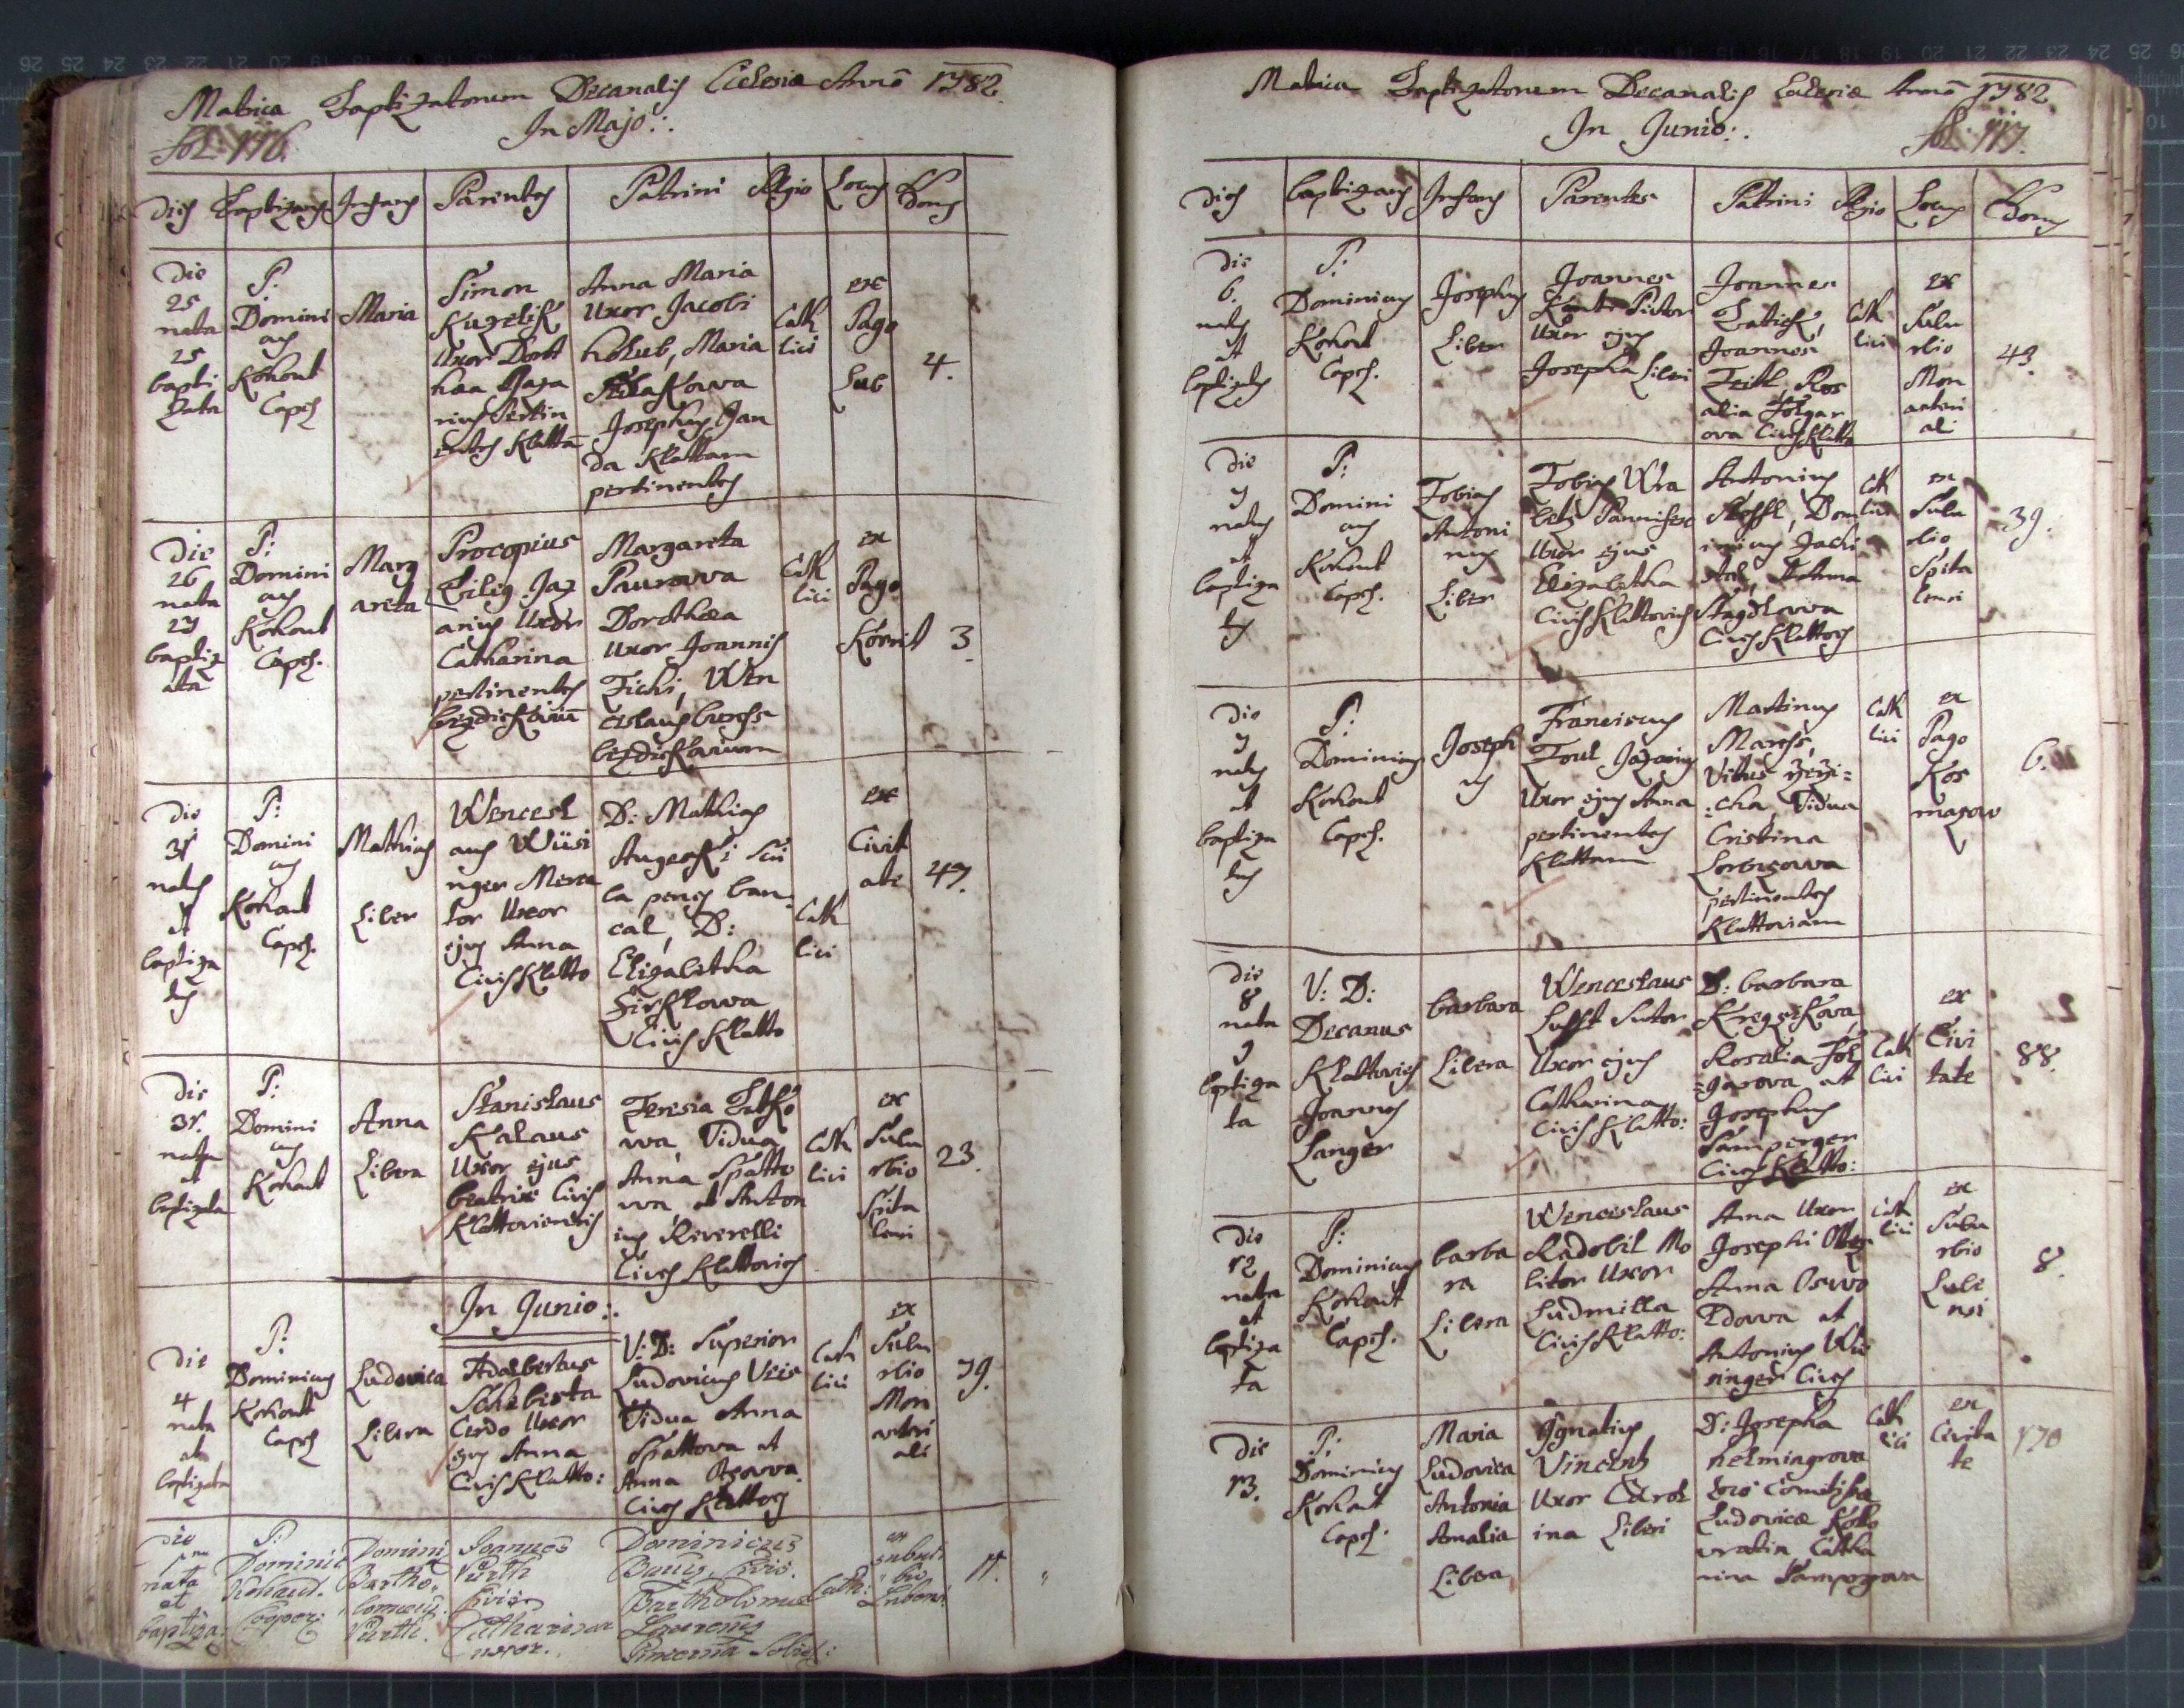 Matrica Baptizatorum Decanalis Eclesiæ Anno 1782.
In Majo:.
fol: 116.
Dies Baptizans Infans Parentes Patrini Religio Locus Domus
die
25
nata
25
bapti
zata
P:
Domini
cus
Kohout
Capel
Maria
Simon
Kuzelik
Uxor Doro
hea Jaza
rius Pertin
entes Klatta
Anna Maria
Uxor Jacobi
holub, Maria
Josephus Jan
da Klattam
pertinentes
Cath
lici
ex
Pago
Lub
4.
Die
26
nata
27
baptiz
ata
P:
Domini
cus
Kohout
Capel.
Marg
areta
Procopius
Zilig Jaz
arius Uxor
Catharina
pertinentes
Margareta
Paurowa
Dorothea
uxor Joannis
Zichi, Wen
ceslaus
Cath
lici
ex
Pago
Kornit
3.
Die
31
natus
et
baptiza
tus
P:
Domini
cus
Kohout
Capel.
Mathias
Liber
Wencesl
aus Wüsi
nger Merca
tor Uxor
ejus Anna
Cives Klatto
D: Mathias
Angerski
la penes ban
cal, D:
Elizabetha
Zirklowa
Cives Klatto
Cath
lici
ex
Civit
ate
47.
Die
31.
nata
et
baptizata
P:
Domini
cus
Kohout
Anna
Libera
Stanislaus
Kalaus
Uxor ejus
beatrix Cives
Klattovienses
Teresia
wa, Vidua
Anna Spatto
wa, et Anton
ius Reverelli
Cives Klattovies
Cath
lici
ex
Subu
rbio
Spita
lensi
23.
In Junio:.
Die
4
nata
et
baptizata
P:
Dominicus
Kohout
Capel
Ludovica
Libera
Adalbertus
Schebesta
Cerdo Uxor
ejus Anna
Cives Klatto:
V: D: Superior
Ludovicus Veis
Vidua Anna
Spattowa et
Anna
Cives Klattov
Cath
lici
ex
Subu
rbio
Mon
asteri
ali
79.
die
nata
et
baptiza:
P:
Dominic
Kohaut.
Cooper:
Domini
Bartho„
lomeus.
Würth.
Joannes
Würth
Civis
Catharina
uxor.
Dominicus
Civis.
Bartholomeus
Laurenz
Cath:
ex
subur
bio
Lubens:
11.
Matrica Baptizatorum Decanalis Eclesiæ Anno 1782.
In Junio:.
fol: 117.
Dies baptizans Infans Parentes Patrini Religio Locus Domus
Die
6.
natus
et
baptizatus
P:
Dominicus
Kohout
Capel.
Josephus
Liber
Joannes
Pictor
Uxor ejus
Josepha Liberi
Joannes
Joannes
Zeitl, Ros
alia Folgar
ova Cives Klatto
Cath
lici
ex
Subu
rbio
Mon
asteri
ali
43.
Die
7
natus
et
baptiza
tus
P:
Domini
cus
Kohout
Capel.
Tobias
Antoni
nus
Liber
Tobias Wra
betz Pannifex
Uxor ejus
Elizabetha
Cives Klattovies
Antonius
Stoffl, Dom
inicus Jachi
Cives Klattovs
Cath
lici
ex
Subu
rbio
Spita
lensi
39.
Die
7
natus
et
baptiza
tus
P:
Dominicus
Kohout
Capel.
Joseph
us
Franciscus
Toul Jazarius
Uxor ejus Anna
pertinentes
Klattam
Martinus
Maresh,
Vitus
cha, Vidua
Cristina
pertinentes
Klattoviam
Cath
lici
ex
Pago
Kos
mazow
6.
die
8
nata
9
baptiza
ta
V: D:
Decanus
Klattovies
Joannes
Langer
barbara
Libera
Wenceslaus
Lufft Sutor
Uxor ejus
Catharina
Cives Klatto:
D: barbara
Kregzikova,
Rosalia Fol
garova et
Josephus
Samperger
Cives Klatto:
Cath
lici
ex
Civi
tate
88.
Die
12
nata
et
baptiza
ta
P:
Dominicus
Kohout
Capel.
barba
ra
Libera
Wenceslaus
Radobil Mo
litor Uxor
Ludmilla
Cives Klatto:
Anna Uxor
Josephi
Anna Oswo
ldowa et
Antonius Wie
singer Cives
Cath
lici
ex
Subu
rbio
Lube
nsi
8.
Die
13.
P:
Dominicus
Kohout
Capel.
Maria
Ludovica
Antonia
Amalia
Libera
Ignatius
Vincenz
Uxor Carol
ina Liberi
D: Josepha
helmingrova
loco Comitissæ
Ludovicæ Koko
wratin Catha
rina Sampergrova
Cath
lici
ex
Civita
te
170